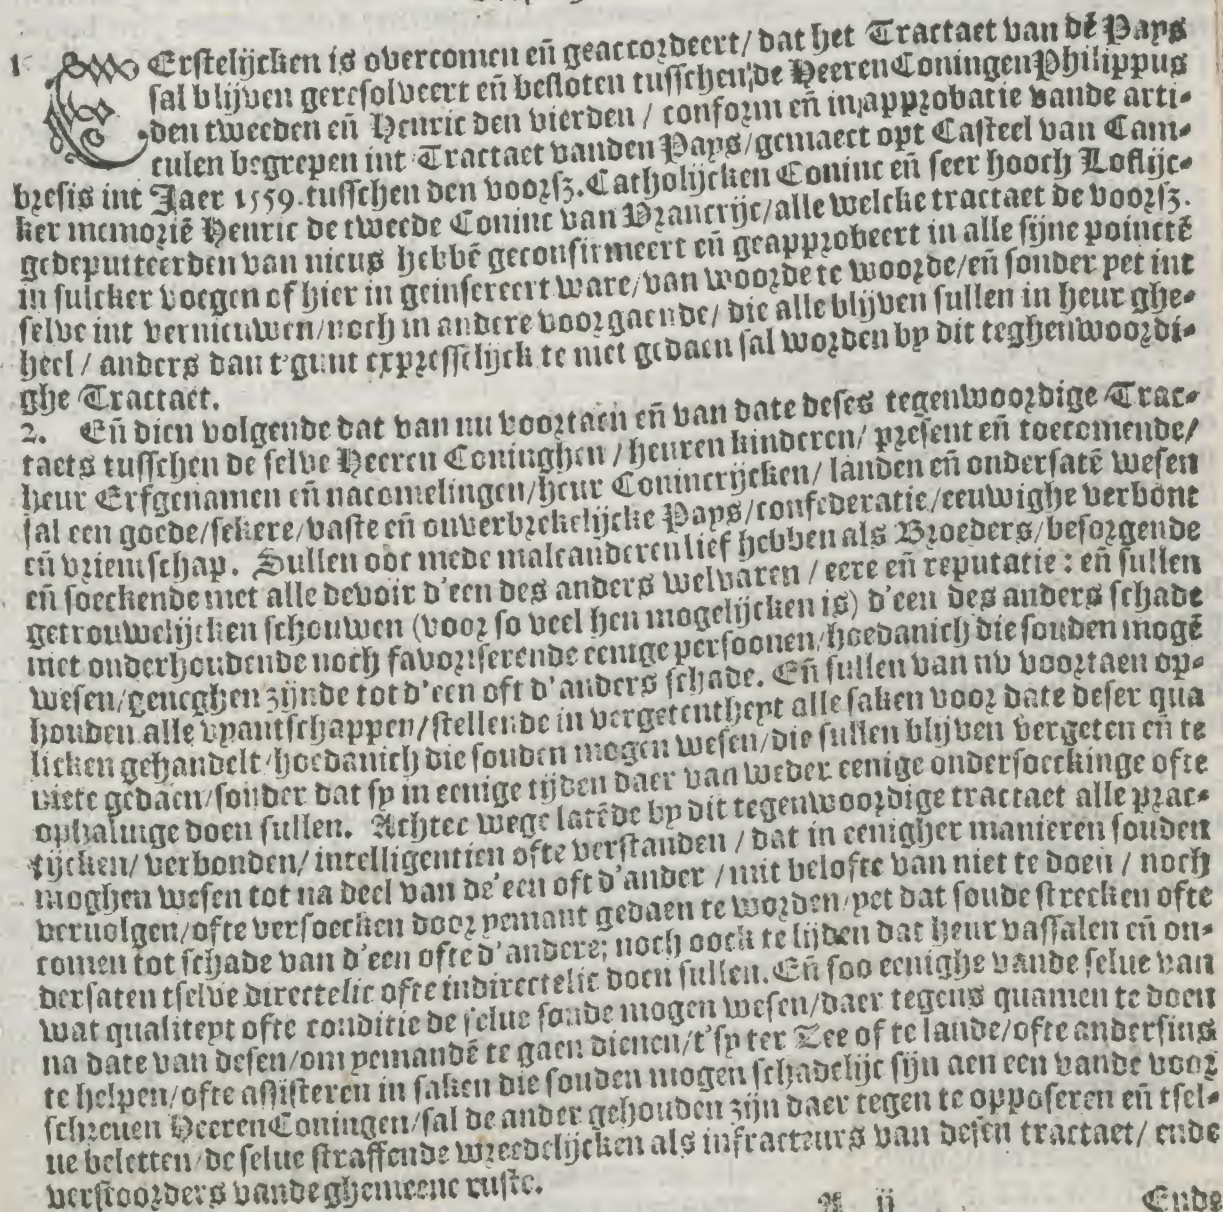 1 Erstelijcken is overcomen eñ geaccordeert/ dat het Tractaet van dē Pays
sal blijven geresolveert eñ besloten tusschen de Heeren Coningen Philippus
den tweeden eñ Henric den vierden / conform eñ in approbatie vande arti-
culen begrepen int Tractaet vanden Pays/gemaect opt Casteel van Cam-
bresis int Jaer 1559. tusschen den voorsz. Catholijcken Coninc eñ seer hooch Loflijc-
ker memoriē Henric de tweede Coninc van Vrancrijc/alle welcke tractaet de voorsz.
gedeputteerden van nieus hebbē geconfirmeert eñ geapprobeert in alle sijne poinctē
in sulcker voegen of hier in geinsereert ware/van woorde te woorde/eñ sonder yet int
selve int vernieuwen/noch in andere voorgaende/ die alle blijven sullen in heur ghe-
heel / anders dan t'gunt expresselijck te niet gedaen sal worden by dit teghenwoordi-
ghe Tractaet.
2. Eñ dien volgende dat van nu voortaen eñ van date deses tegenwoordige Trac-
taets tusschen de selve Heeren Coninghen / heuren kinderen/ present eñ toecomende/
heur Erfgenamen eñ nacomelingen/heur Conincrijcken/ landen eñ ondersatē wesen
sal een goede/sekere/vaste eñ onverbrekelijcke Pays/confederatie/eeuwighe verbont
eñ vriemschap. Sullen ooc mede malcanderen lief hebben als Broeders/besorgende
eñ soeckende met alle devoir d'een des anders welvaren / eere eñ reputatie : eñ sullen
getrouwelijcken schouwen (voor so veel hen mogelijcken is) d'een des anders schade
niet onderhoudende noch favoriserende eenige persoonen/hoedanich die souden mogē
wesen/geneghen zijnde tot d'een oft d'anders schade. Eñ sullen van nv voortaen op-
houden alle vyantschappen/stellende in vergetentheyt alle saken voor date deser qua
licken gehandelt/hoedanich die souden mogen wesen/die sullen blijven vergeten eñ te
niete gedaen/sonder dat sy in eenige tijden daer van weder eenige ondersoeckinge ofte
ophalinge doen sullen. Achter wege latēde by dit tegenwoordige tractaet alle prac-
tijcken/ verbonden/ intelligentien ofte verstanden / dat in eenigher manieren souden
moghen wesen tot na deel van de'een oft d'ander / mit belofte van niet te doen / noch
veruolgen/ofte versoecken door yemant gedaen te worden/yet dat soude strecken ofte
comen tot schade van d'een ofte d'andere; noch oock te lijden dat heur vassalen eñ on-
dersaten tselve directelic ofte indirectelic doen sullen. Eñ soo eenighe vande selue van
wat qualiteyt ofte conditie de selue soude mogen wesen/daer tegens quamen te doen
na date van desen/om yemandē te gaen dienen/t'sy ter Zee of te lande/ofte andersins
te helpen/ofte assisteren in saken die souden mogen schadelijc sijn aen een vande voor
schreuen Heeren Coningen/sal de ander gehouden zijn daer tegen te opposeren eñ tsel-
ue beletten/de selue straffende wreedelijcken als infracteurs van desen tractaet/ ende
verstoorders vande ghemeene ruste.
A ij Ende